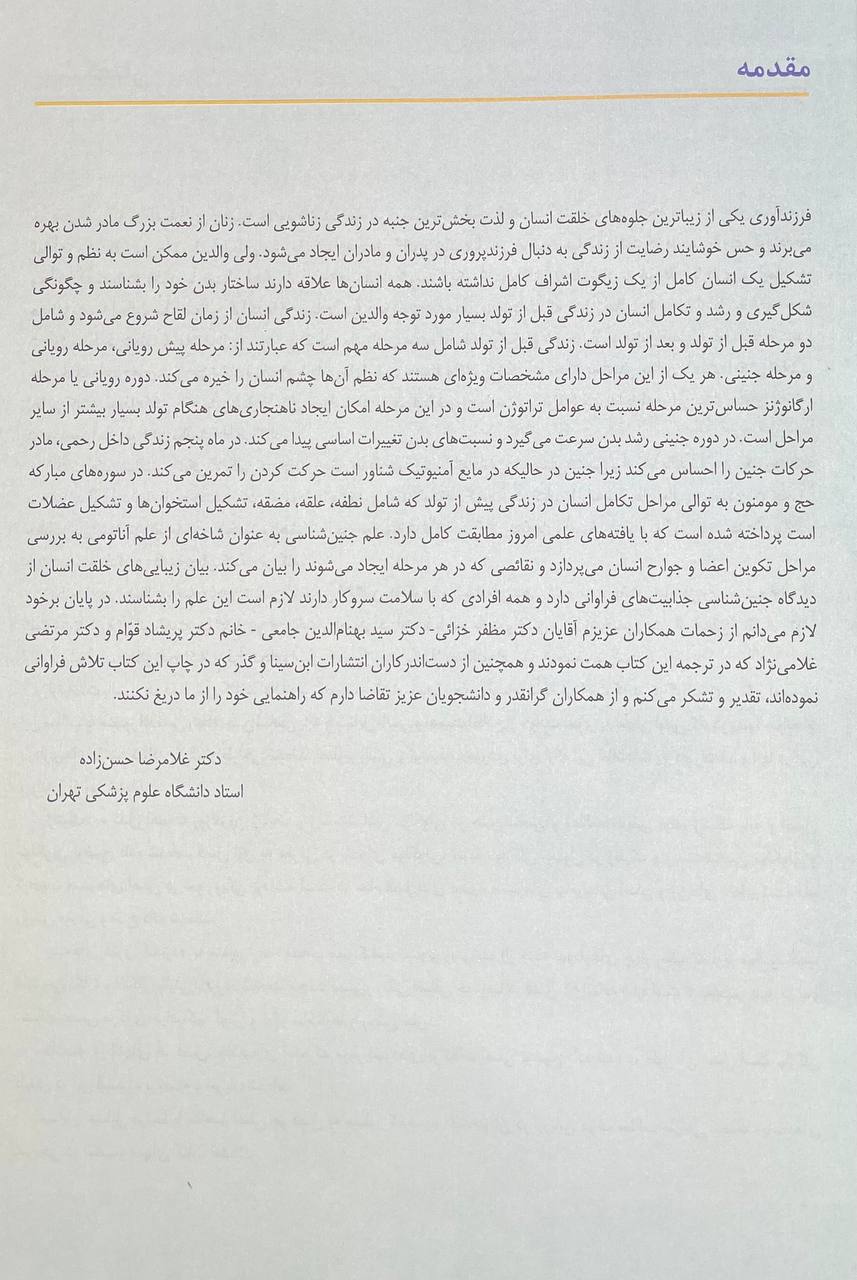 مقدمه
فرزندآوری یکی از زیباترین جلوه‌های خلقت انسان و لذت بخش‌ترین جنبه در زندگی زناشویی است. زنان از نعمت بزرگ مادر شدن بهره
می‌برند و حس خوشایند رضایت از زندگی به دنبال فرزندپروری در پدران و مادران ایجاد می‌شود. ولی والدین ممکن است به نظم و توالی
تشکیل یک انسان کامل از یک زیگوت اشراف کامل نداشته باشند. همه انسان‌ها علاقه دارند ساختار بدن خود را بشناسند و چگونگی
شکل‌گیری و رشد و تکامل انسان در زندگی قبل از تولد بسیار مورد توجه والدین است. زندگی انسان از زمان لقاح شروع می‌شود و شامل
دو مرحله قبل از تولد و بعد از تولد است. زندگی قبل از تولد شامل سه مرحله مهم است که عبارتند از: مرحله پیش رویانی، مرحله رویانی
و مرحله جنینی. هر یک از این مراحل دارای مشخصات ویژه‌ای هستند که نظم آن‌ها چشم انسان را خیره می‌کند. دوره رویانی یا مرحله
ارگانوژنز حساس‌ترین مرحله نسبت به عوامل تراتوژن است و در این مرحله امکان ایجاد ناهنجاری‌های هنگام تولد بسیار بیشتر از سایر
مراحل است. در دوره جنینی رشد بدن سرعت می‌گیرد و نسبت‌های بدن تغییرات اساسی پیدا می‌کند. در ماه پنجم زندگی داخل رحمی، مادر
حرکات جنین را احساس می‌کند زیرا جنین در حالیکه در مایع آمنیوتیک شناور است حرکت کردن را تمرین می‌کند. در سوره‌های مبارکه
حج و مومنون به توالی مراحل تکامل انسان در زندگی پیش از تولد که شامل نطفه، علقه، مضقه، تشکیل استخوان‌ها و تشکیل عضلات
است پرداخته شده است که با یافته‌های علمی امروز مطابقت کامل دارد. علم جنین‌شناسی به عنوان شاخه‌ای از علم آناتومی به بررسی
مراحل تکوین اعضا و جوارح انسان می‌پردازد و نقائصی که در هر مرحله ایجاد می‌شوند را بیان می‌کند. بیان زیبایی‌های خلقت انسان از
دیدگاه جنین‌شناسی جذابیت‌های فراوانی دارد و همه افرادی که با سلامت سروکار دارند لازم است این علم را بشناسند. در پایان برخود
لازم می‌دانم از زحمات همکاران عزیزم آقایان دکتر مظفر خزائی- دکتر سید بهنام‌الدین جامعی - خانم دکتر پریشاد قوّام و دکتر مرتضی
غلامی‌نژاد که در ترجمه این کتاب همت نمودند و همچنین از دست‌اندرکاران انتشارات ابن‌سینا و گذر که در چاپ این کتاب تلاش فراوانی
نموده‌اند، تقدیر و تشکر می‌کنم و از همکاران گرانقدر و دانشجویان عزیز تقاضا دارم که راهنمایی خود را از ما دریغ نکنند.
دکتر غلامرضا حسن‌زاده
استاد دانشگاه علوم پزشکی تهران